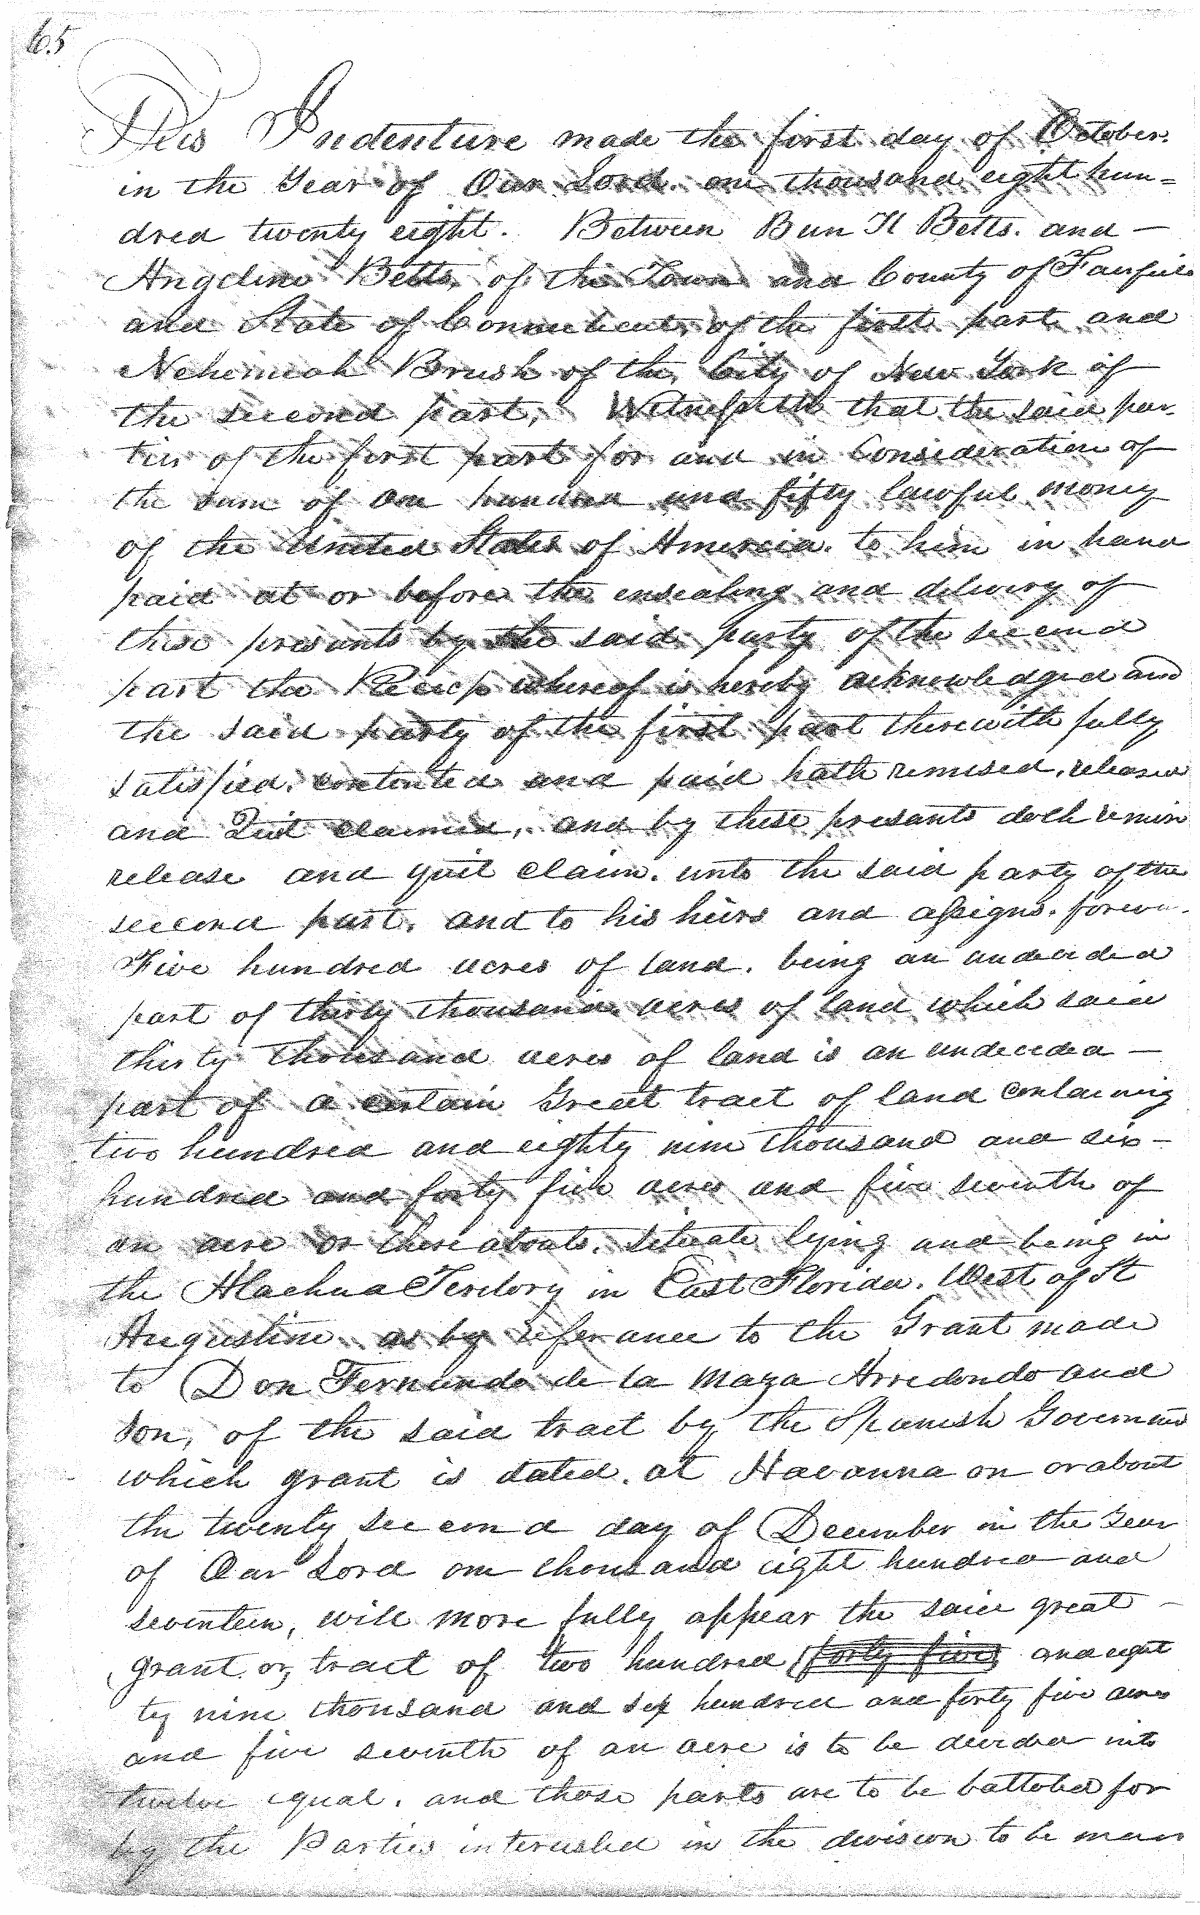 65
This Indenture made the first day of October.
in the Year of Our Lord. one thousand eight hun=
dred twenty eight. Between Bun H Betts. and —
Angeline Betts, of the Town and County of Fairfield
and State of Connecticut, of the first part, and
Nehemiah Brush of the City of New York of
the second part, Witnesseth that the said par-
ties of the first part for and in Consideration of
the sum of one hundred and fifty lawful money
of the United States of America. to him in hand
paid at or before the ensealing and delivery of
these presants by the said party of the second
part the Receip whereof is hereby acknowledged and
the said party of the first part therewith fully
satisfied. contented and paid hath remised, released
and Quit claimed, and by these presants doth remise
release and quit claim. unto the said party of the
second part, and to his heirs and assigns. forever.
Five hundred acres of land. being an undevided
part of thirty thousand acres of land which said
thirty thousand acres of land is an undecided —
part of a certain Great tract of land containing
two hundred and eighty nine thousand and six —
hundred and forty five acres and five seventh of
an acre or there abouts. Situate lying and being in
the Alachua Teritory in East Florida. West of St
Augustine. as by referance to the Grant made
to Don Fernando de la Maza Arredondo and
Son, of the said tract by the Spanish Government
which grant is dated. at Havanna on or about
the twenty second day of December in the Year
of Our Lord one thousand eight hundred and
seventeen, will more fully appear the said great —
grant or, tract of two hundred forty five and eigh
ty nine thousand and six hundred and forty five acres
and five seventh of an acre is to be devided into
twelve equal. and those parts are to be balloted for
by the Parties interested in the division to be made